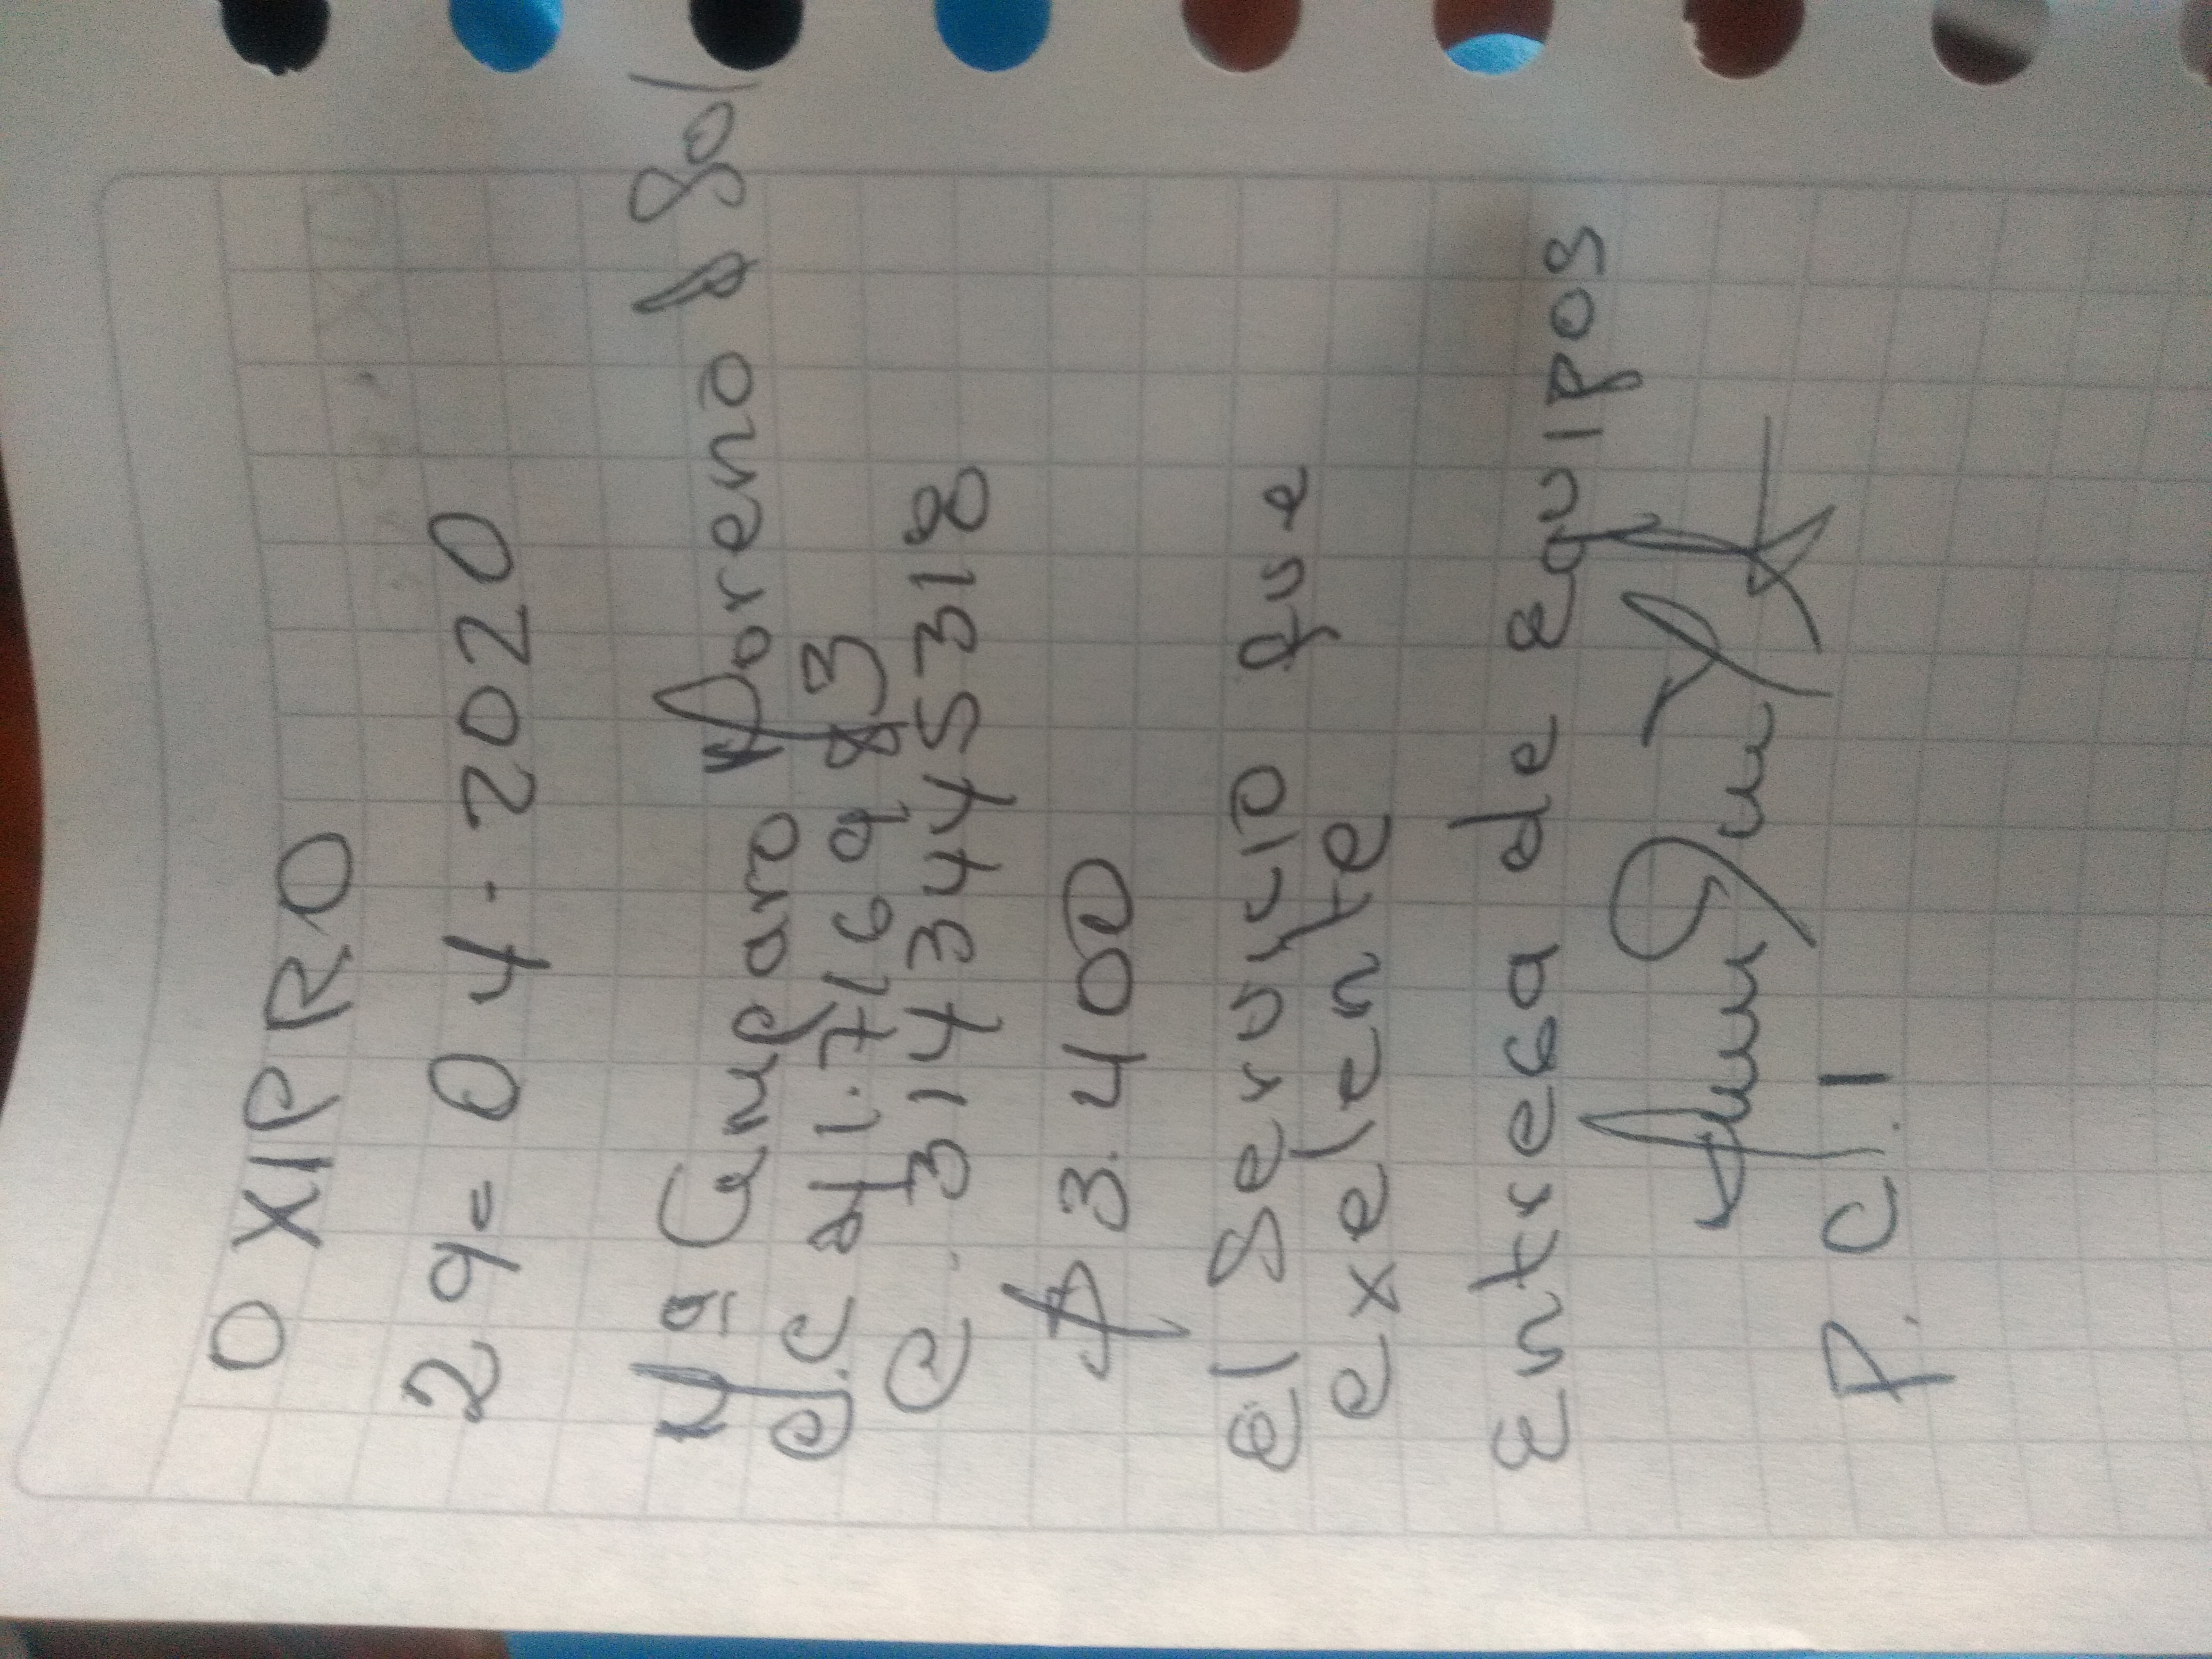 OXIPRO
29-04-2020
Ma Amparo Moreno D Sol
C.C 21.716983
C. 3143445318
$ 3.400
el Servicio fue
exelente
Entrega de Equipos
P.C.1